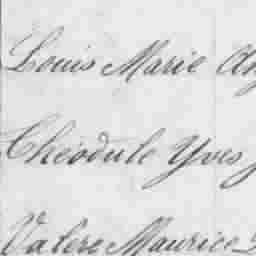 Louis Marie
Théodule Yves
Valère Maurice